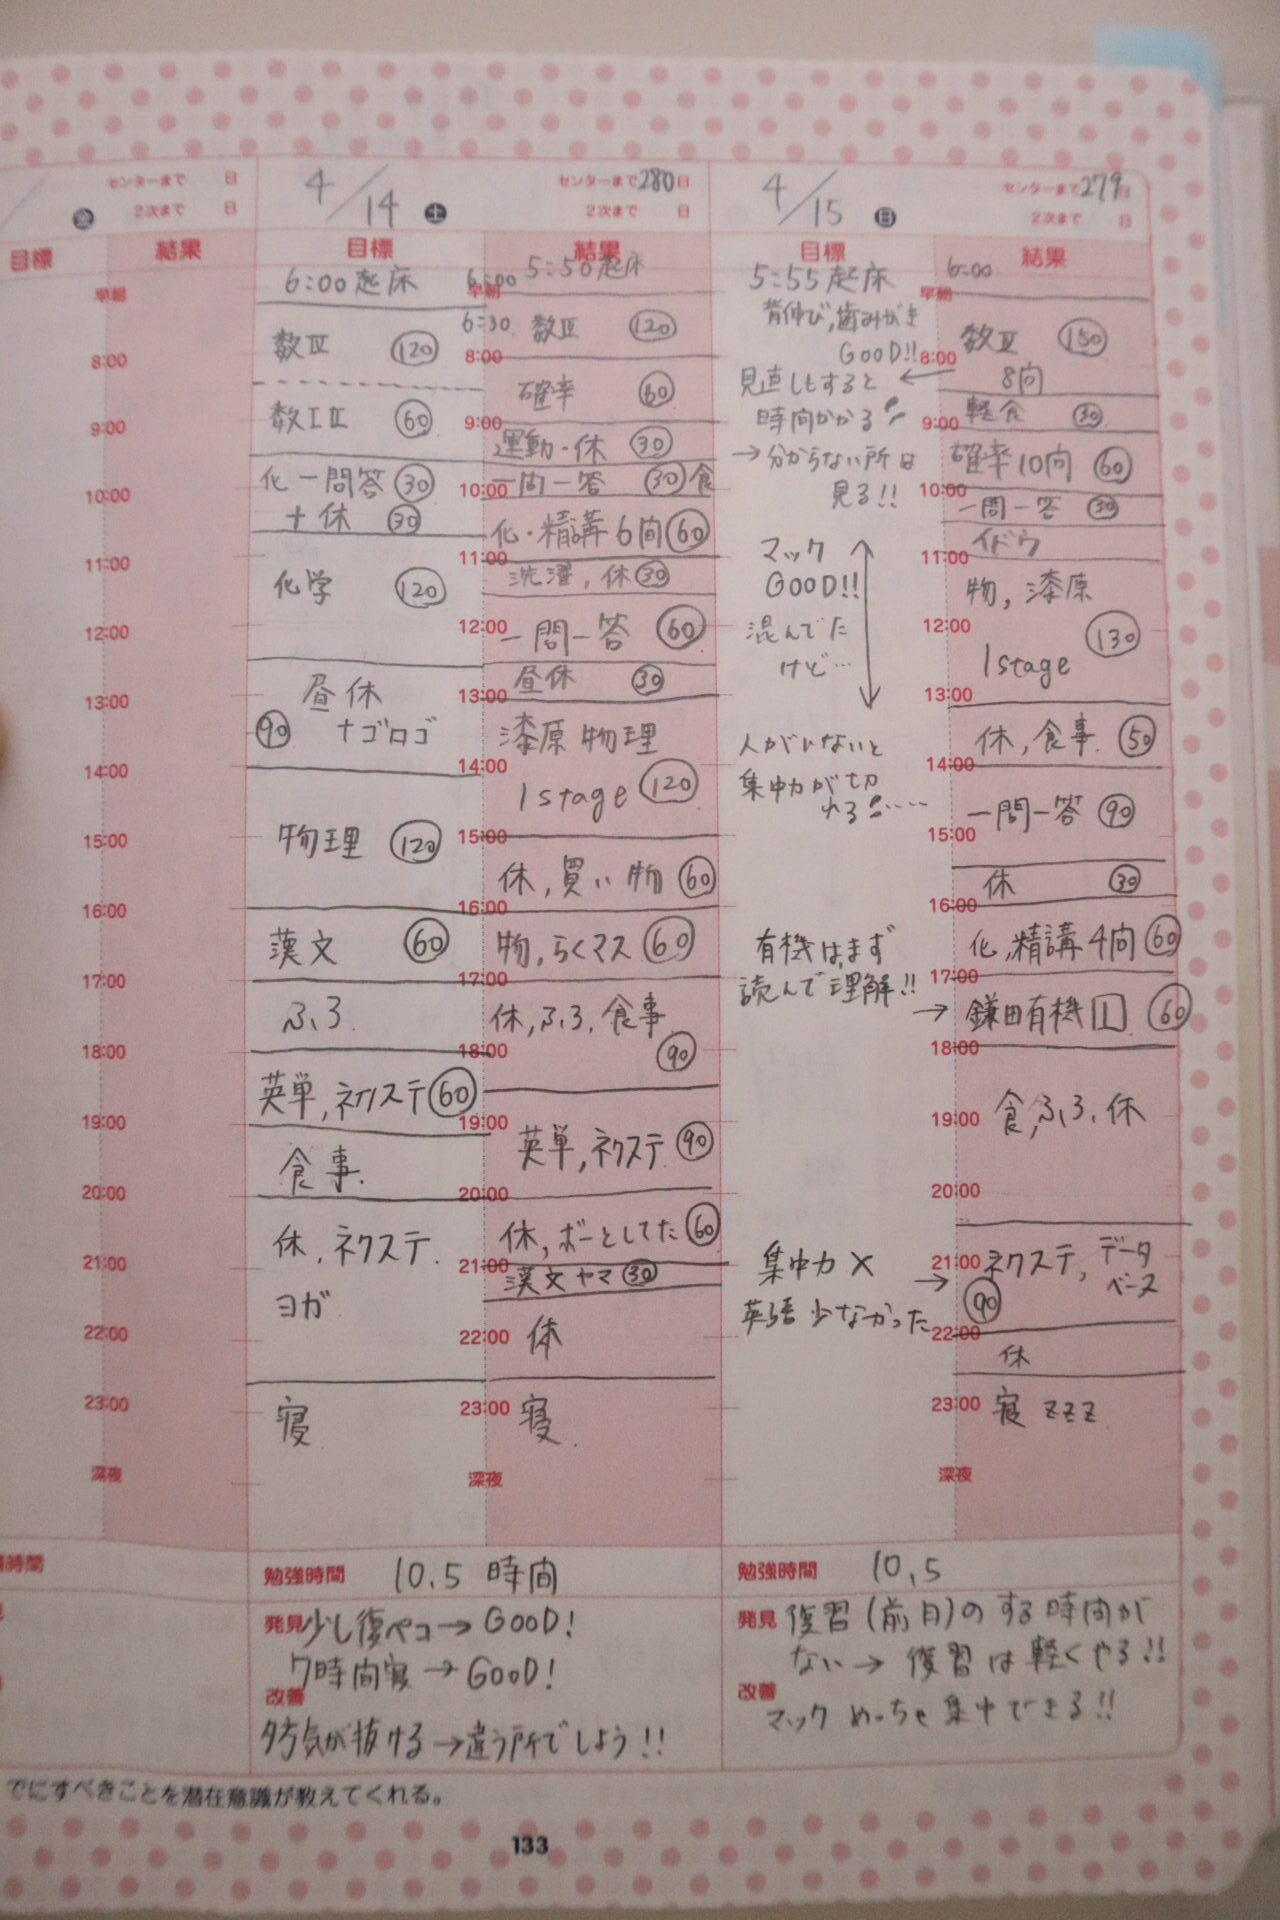 センターまで 日
2次まで 日
金
目標 結果
早朝
8:00
9:00
10:00
11:00
12:00
13:00
14:00
15:00
16:00
17:00
18:00
19:00
20:00
21:00
22:00
23:00
深夜
時間
4/14 土
センターまで280日
2次まで 日
目標
6:00起床
数Ⅲ 120
数ⅠⅡ 60
化 一問答 30
+休 30
化学 120
昼休
90 +ゴロゴ
物理 120
漢文 60
ふろ
英単,ネクステ 60
食事.
休,ネクステ
ヨガ
寝
結果
6:00 5:50起床
早朝
6:30 数Ⅲ 120
8:00
確率 60
9:00
運動・休 30
10:00 一問一答 30 食
化・精講 6問 60
11:00
洗濯,休 30
12:00 一問一答 60
13:00 昼休 30
漆原 物理
14:00
1stage 120
15:00
休,買い物 60
16:00
物,らくマス 60
17:00
休,ふろ,食事
18:00 90
19:00
英単,ネクステ 90
20:00
休,ボーとしてた 60
21:00
漢文ヤマ 30
22:00 休
23:00 寝
深夜
勉強時間 10.5 時間
発見 少し復ペコ→GOOD!
7時間寝→GOOD!
改善
夕方気が抜ける→違う所でしよう!!
4/15 日
センターまで279日
2次まで 日
目標
5:55起床
背伸び,歯みがき
GOOD!!
見直しもすると
時間かかる
→分からない所は
見る!!
マック
GOOD!!
混んでた
けど…
人がいないと
集中力が切
れる
有機は,まず
読んで理解!!
→
集中力×
英語少なかった
→
結果
6:00
早朝
数Ⅲ 150
8:00
8問
9:00 軽食 30
確率10問 60
10:00
一問一答 30
イドウ
11:00
物,漆原
12:00 130
1stage
13:00
休,食事. 50
14:00
一問一答 90
15:00
休 30
16:00
化,精講4問 60
17:00
鎌田有機 1 60
18:00
19:00 食,ふろ,休
20:00
21:00 ネクステ,データ
ベース
90
22:00
休
23:00 寝 zzz
深夜
勉強時間 10.5
発見 復習(前日)のする時間が
ない→復習は軽くやる!!
改善
マックめっちゃ集中できる!!
でにすべきことを潜在意識が教えてくれる。
133